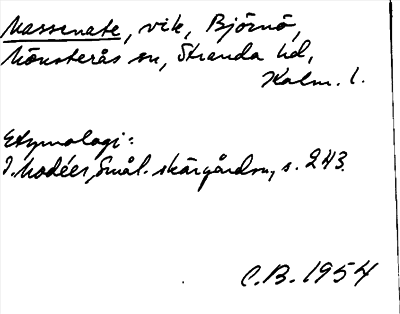 Massenate, vik, Björnö,
Mönsterås sn, Stranda hd,
Kalm. l.
Etymologi:
I. Modéer, Smål. skärgårdsn, s. 243.
C.B. 1954